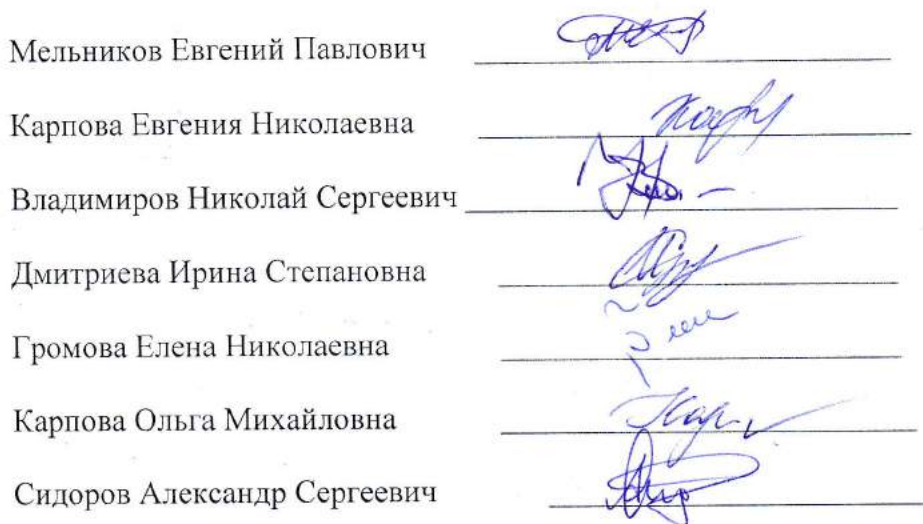 Мельников Евгений Павлович
Карпова Евгения Николаевна
Владимиров Николай Сергеевич
Дмитриева Ирина Степановна
Громова Елена Николаевна
Карпова Ольга Михайловна
Сидоров Александр Сергеевич